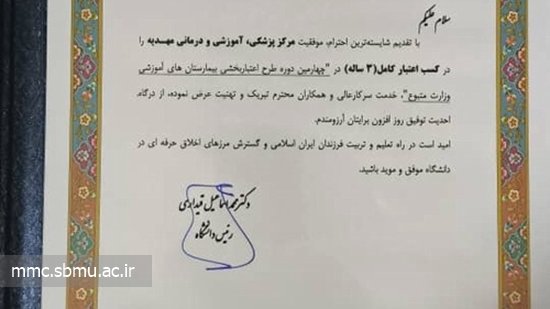 سلام علیکم
با تقدیم شایسته‌ترین احترام، موفقیت مرکز پزشکی، آموزشی و درمانی مهدیه را
در کسب اعتبار کامل(۳ ساله) در "چهارمین دوره طرح اعتباربخشی بیمارستان های آموزشی
وزارت متبوع"، خدمت سرکارعالی و همکاران محترم تبریک و تهنیت عرض نموده، از درگاه
احدیت توفیق روز افزون برایتان آرزومندم.
امید است در راه تعلیم و تربیت فرزندان ایران اسلامی و گسترش مرزهای اخلاق حرفه ای در
دانشگاه موفق و موید باشید.
دکتر محمد اسماعیل قیداری
رئیس دانشگاه
mmc.sbmu.ac.ir